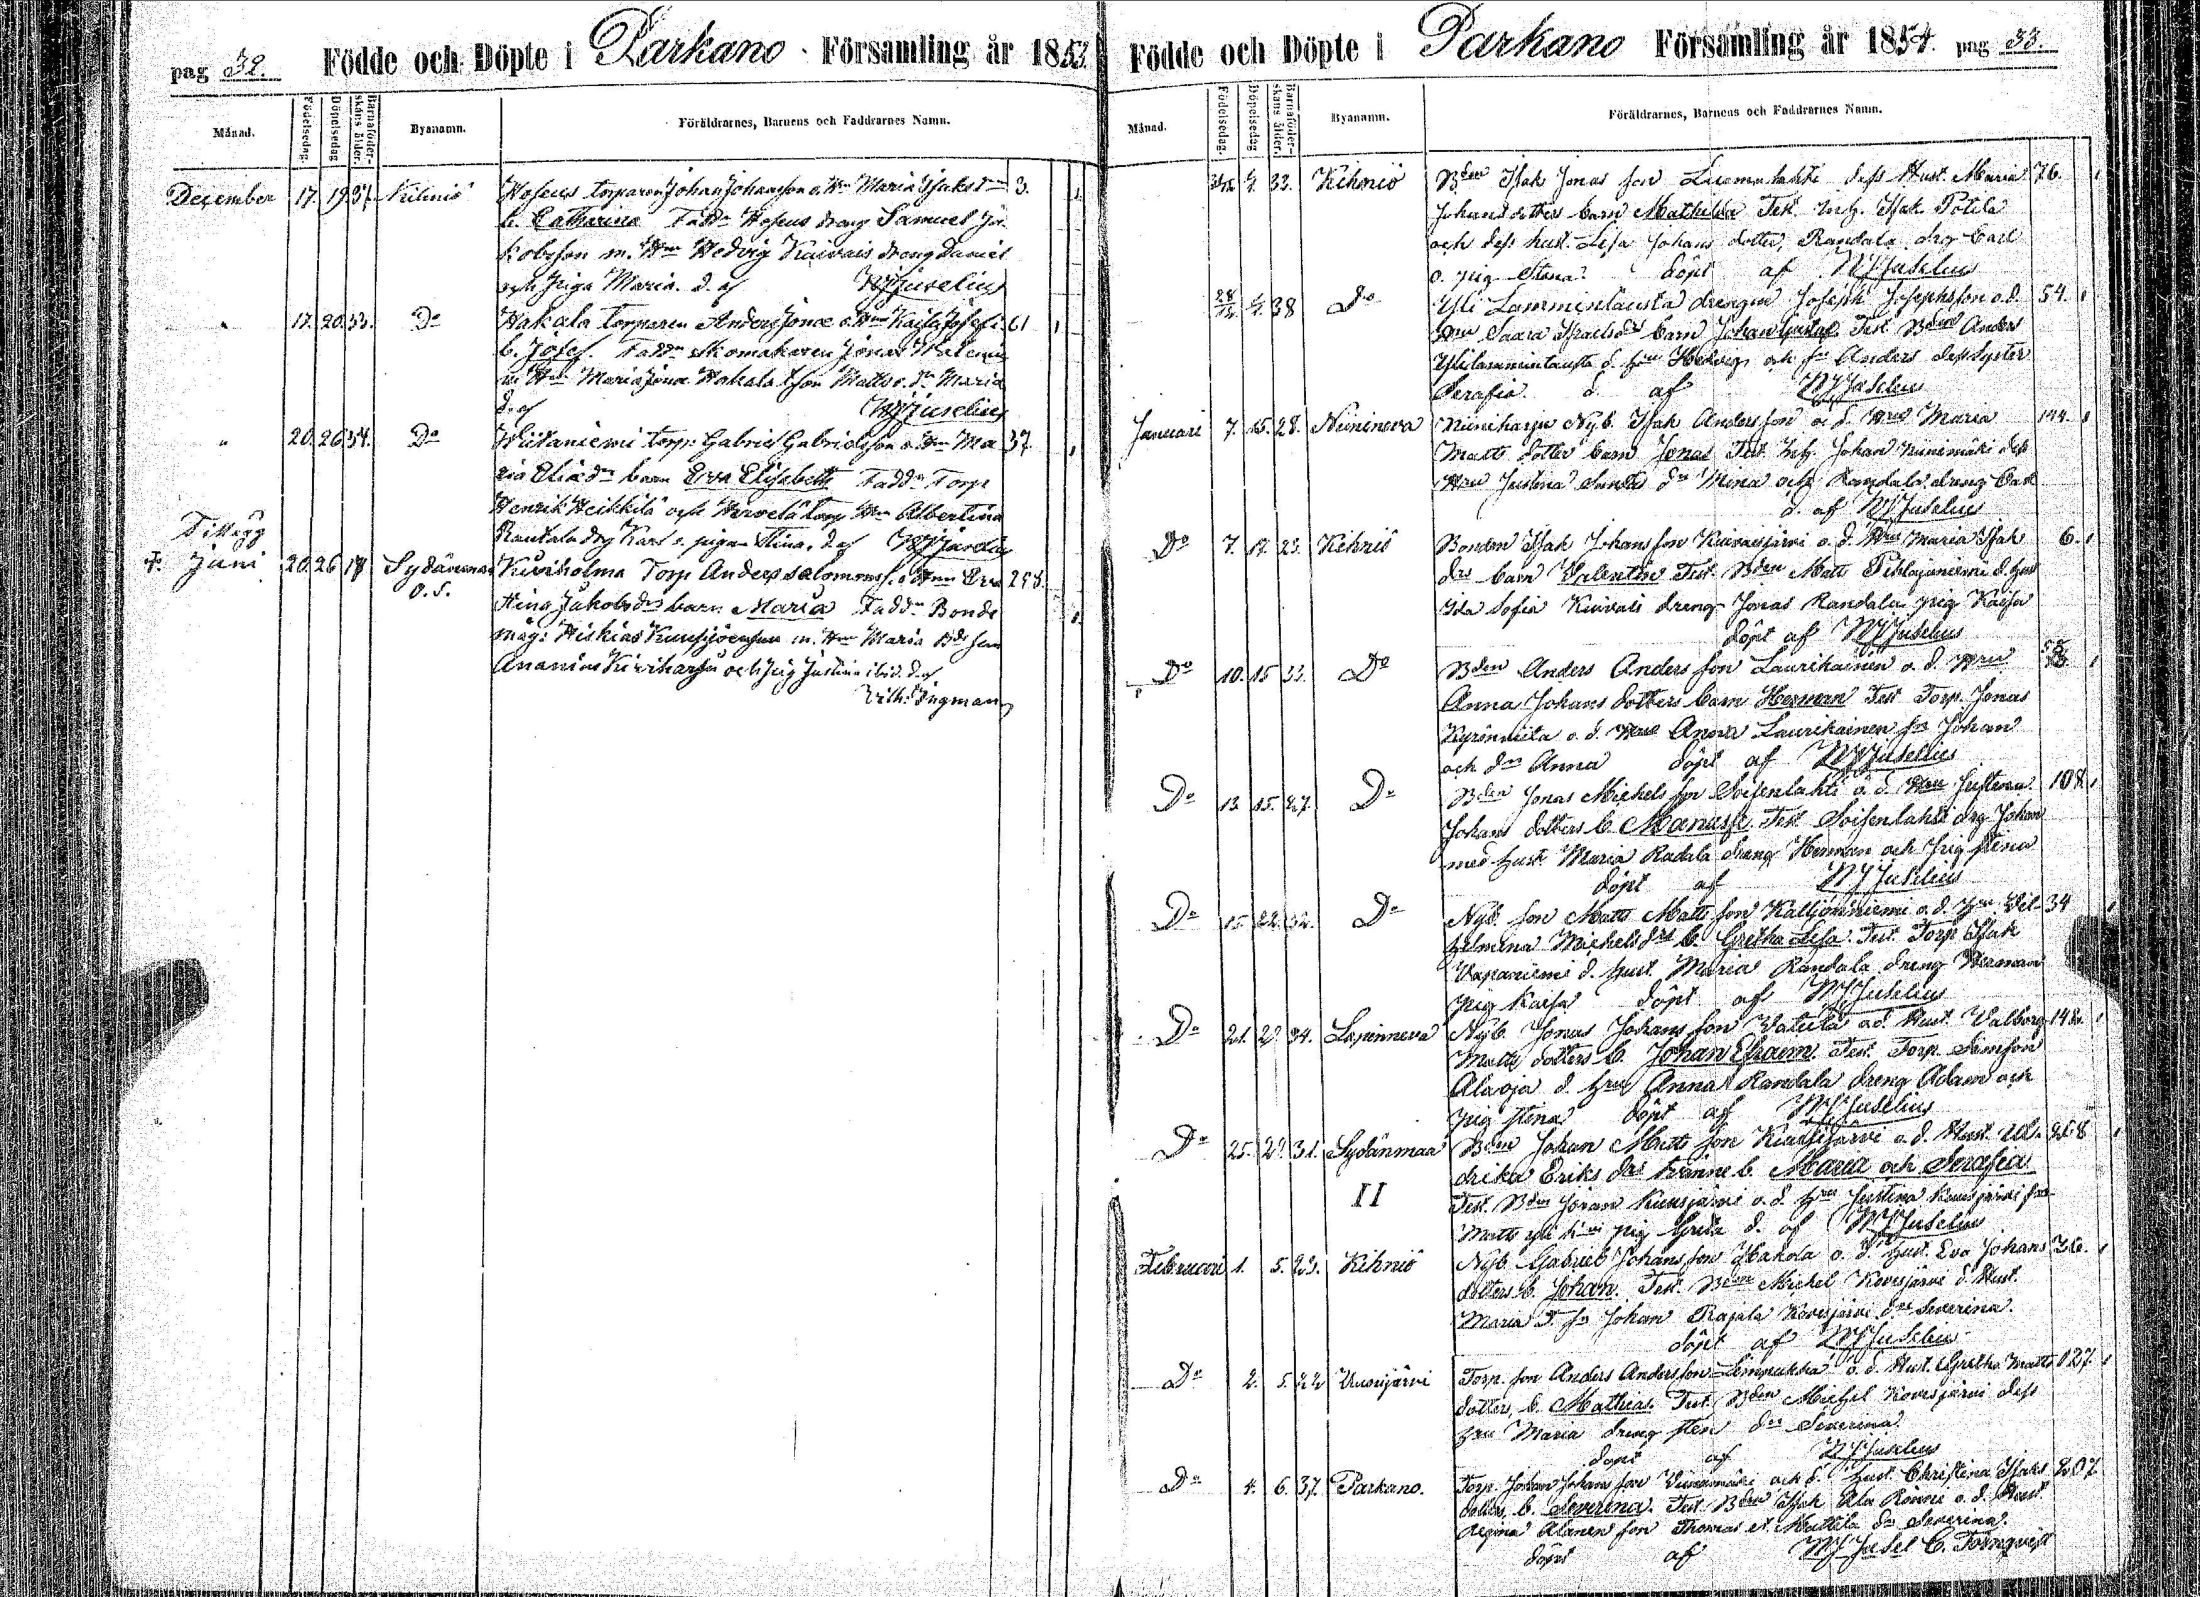 pag 32. Födde och Döpte i Parkano Församling år 1853.
Månad. Födelsedag. Döpelsedag Barnaföderskans ålder. Byanamn. Föräldrarnes, Barnens och Faddrarnes Namn.
December 17. 19. 37. Kihniö Hoseus torparen Johan Johansson o. Hru Maria Isaks dr 3.
b. Catharina Faddr Hoseus dräng Samuel Ja
kobsson m. Hru Hedvig Kaivais dräng Daniel
och Piga Maria. d. af WJJuselius
" 17. 20. 33. Do Hakala torparen Anders Jonæ o. Hru Kajsa Josefs 61
b. Josef. Faddr skomakaren Jonas
m. Hru Maria Jonæ Hakala tson Matts o. dr Maria
d. af WJJuselius
" 20. 26. 34. Do torp. Gabriel Gabrielsson o. Hru Ma 37.
ria Eliæ dr barn Eva Elisabeth Faddr Torp
Henrik Heikkilä och torp Hru Albertina
Randala drg Karl o. pigan Stina. d. af WJJuselius
Tillägg
Juni 20. 26 18 Sydänmaa Kiviholma Torp Anders Salomonss. o. Hru Eva 258.
O. S. Stina Jakobs dr barn Maria Faddr Bonde
måg: Hiskias m. Hru Maria Bde son
Ananias Kiviharju och pig Justina ibid. d. af
Vilh. Ingman
Födde och Döpte i Parkano Församling år 1854. pag 33.
Månad. Födelsedag. Döpelsedag Barnaföderskans ålder. Byanamn. Föräldrarnes, Barnens och Faddrarnes Namn.
33. Kihniö Bden Isak Jonas son Luomalahti dess Hust. Maria 76.
Johans dotters barn Mathilda Test. Isak Potila
och dess hust. Lisa Johans dotter, Randala drg Carl
o. pig Stina. döpt af WJJuselius
28/12 38 Do Yli Lammintausta drengen Joseph Josephsson o. d. 54.
Hru Saara barn Johan Gustaf Test. Bden Anders
Ylilammintausta d. hru Hedvig och sn Anders dess syster
Serafia. d. af WJJuselius
Januari 7. 15. 28. Niinineva Niiniharju Nyb. Isak Anders son o. d. Hru Maria 144.
Matts dotter barn Jonas Test. Johan Niinimäki dess
Hru Justina dr Mina och Randala dreng Carl
d. af WJJuselius
Do 7. 17. 23. Kihniö Bonden Isak Johans son Kuivaisjärvi o. d. Hru Maria Isaks 6.
drs barn Valentin Test. Bden Matts Pihlajaniemi d. hru
Ida Sofia Kuivais dreng Jonas Randala pig Kaisa
döpt af WJJuselius
Do 10. 15 33. Do Bden Anders Anders son Laurikainen o. d. Hru 58
Anna Johans dotters barn Herman Test Torp. Jonas
o. d. Hru Anna Laurikainen sn Johan
och dr Anna döpt af WJJuselius
Do 13. 15. 27. Do Bden Jonas Michels son Soisenlahti o. d. Hru Justina 108.
Johans dotters b. Manasse. Test Soisenlahti drg Johan
med hust. Maria Radala dreng Herman och pig Stina
döpt af WJJuselius
Do 15. 22. 32. Do Nyb. son Matts Matts son Kalliomniemi o. d. Hru Vil- 34
helmina Michels drs b. Gretha Lisa. Test. Torp Isak
Vapaniemi d. hust. Maria Randala dreng Herman
pig Kaisa döpt af WJJuselius
Do 21. 29. 34. Lapinneva Nyb. Jonas Johans son Vatula o. d. Hust. Valborg 148.
Matts dotters b. Johan Efraim. Test. Torp. Simson
Alaoja d. hru Anna Randala dreng Adam och
pig Stina döpt af WJJuselius
Do 25. 29. 31. Sydänmaa Bden Johan Matts son Kuusijärvi o. d. Hust. Ul- 268
II drika Eriks drs tvänne b. Maria och Serafia
Test. Bden Johan Kuusjärvi o. d. hru Justina Kuusjärvi sn
Matts pig Greta d. af WJJuselius
Februari 1. 5. 23. Kihniö Nyb. Gabriel Johans son Hakola o. d. Hust. Eva Johans 36.
dotters b. Johan. Test. Bden Michel Kovesjärvi d. Hust.
Maria d. sn Johan Rajala Kovesjärvi dr Severina.
döpt af WJJuselius
Do 2. 5. 22 Kuusijärvi Torp. son Anders Anders son Limpukka o. d. Hust. Gretha Matts 127.
dotters, b. Mathias. Test. Bden Michel Kovesjärvi dess
hru Maria dreng Sten dr Severina.
döpt af WJJuselius
Do 4. 6. 37. Parkano. Torp. Johan Johans son och d. hust. Christina Isaks 207.
dotters, b. Severina. Test. Bden Isak Ala Rönni o. d. Hust.
Regina Alanen son Thomas et Mattila dr Severina.
döpt af WJJusel C. Törnqvist